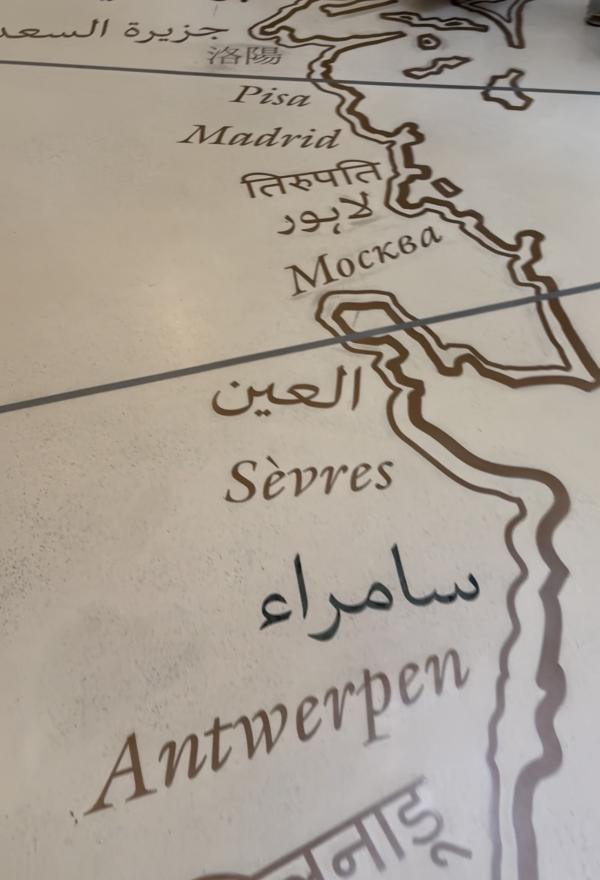 جزيرة السعد
洛陽
Pisa
Madrid
तिरुपति
لاہور
Москва
العين
Sèvres
سامراء
Antwerpen